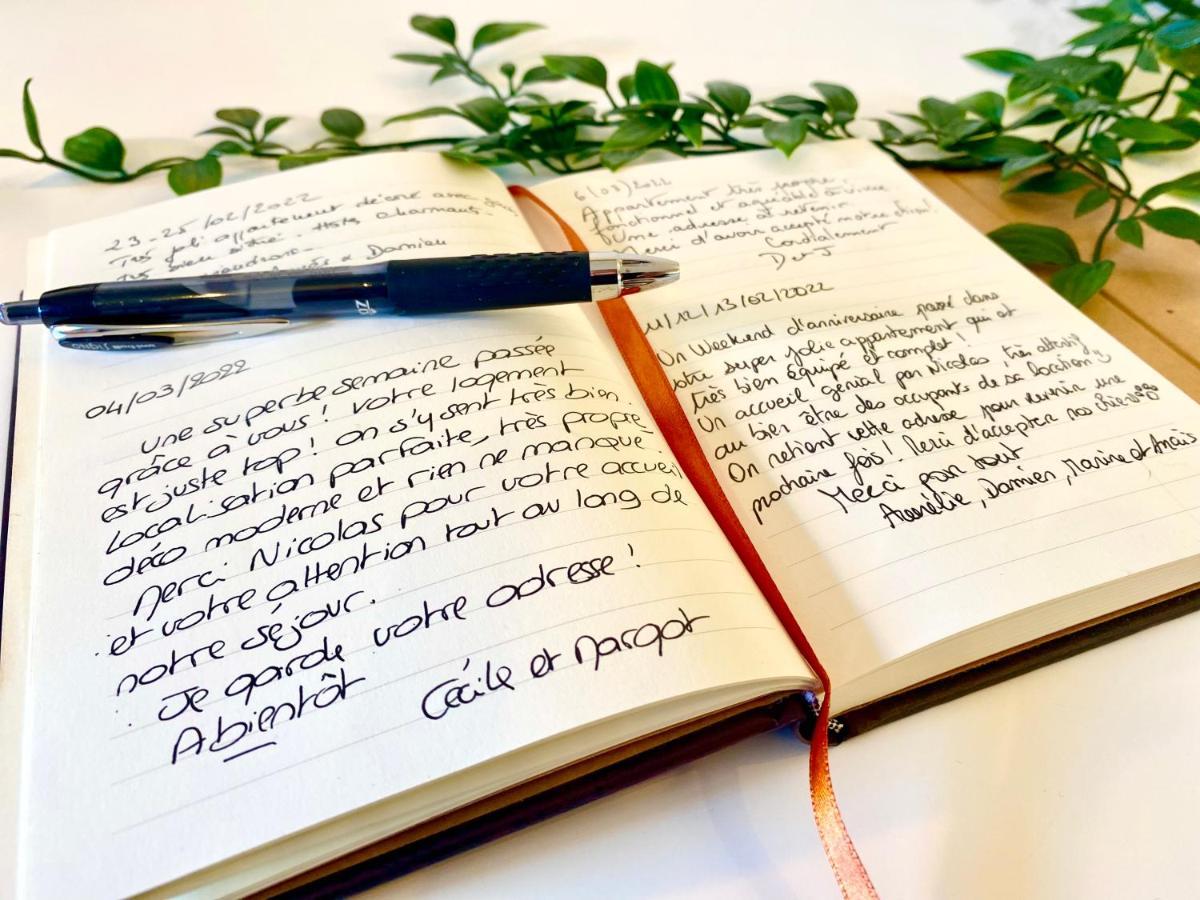 23-25/02/2022
Très joli appartement décoré avec
Très bien situé. Hôts charmants.
& Damien
04/03/2022
une superbe semaine passée
grâce à vous! votre logement
est juste top! on s'y sent très bien.
Localisation parfaite, très propre
déco moderne et rien ne manque
Merci Nicolas pour votre accueil
et votre attention tout au long de
notre séjour.
Je garde votre adresse!
A bientôt
Cécile et Margot
Appartement très propre.
fonctionnel et agréable à vivre
Une adresse à retenir
Merci d'avoir accepté notre chien!
Cordialement
D et J
11/12/13/02/2022
Un Weekend d'anniversaire passé dans
votre super jolie appartement qui est
très bien équipé et complet!
Un accueil génial par Nicolas très attentif
au bien être des occupants de sa location!
On retient cette adresse pour revenir une
prochaine fois! Merci d'accepter nos chiens
Merci pour tout
Aurélie, Damien, Marine et Anaïs